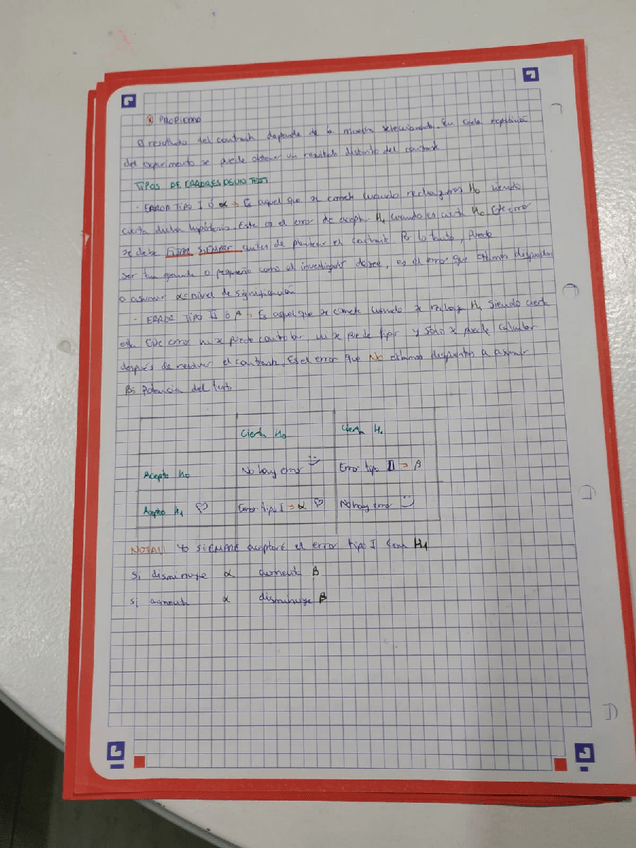 ① PROPIEDAD
El resultado del contraste depende de la muestra seleccionada. En cada repetición
del experimento se puede obtener un resultado distinto del contraste
TIPOS DE ERRORES DE UN TEST
· ERROR TIPO I O α → Es aquel que se comete cuando rechazamos H₀ siendo
cierta dicha hipótesis. Este es el error de aceptar H₁ cuando es cierta H₀. Este error
se debe FIJAR SIEMPRE antes de plantear el contraste. Por lo tanto, puede
ser tan grande o pequeño como el investigador desee, es el error que estamos dispuestos
a asumir α = nivel de significación
· ERROR TIPO II O β → Es aquel que se comete cuando se rechaza H₁ siendo cierta
esta. Este error no se puede controlar ni se puede fijar y sólo se puede calcular
después de realizar el contraste. Es el error que NO estamos dispuestos a asumir
β = Potencia del test
Cierta H₀ Cierta H₁
Acepto H₀ No hay error Error tipo II → β
Acepto H₁ Error tipo I → α No hay error
NOTA: Yo SIEMPRE aceptaré el error tipo I con H₁
Si disminuye α aumenta β
Si aumenta α disminuye β